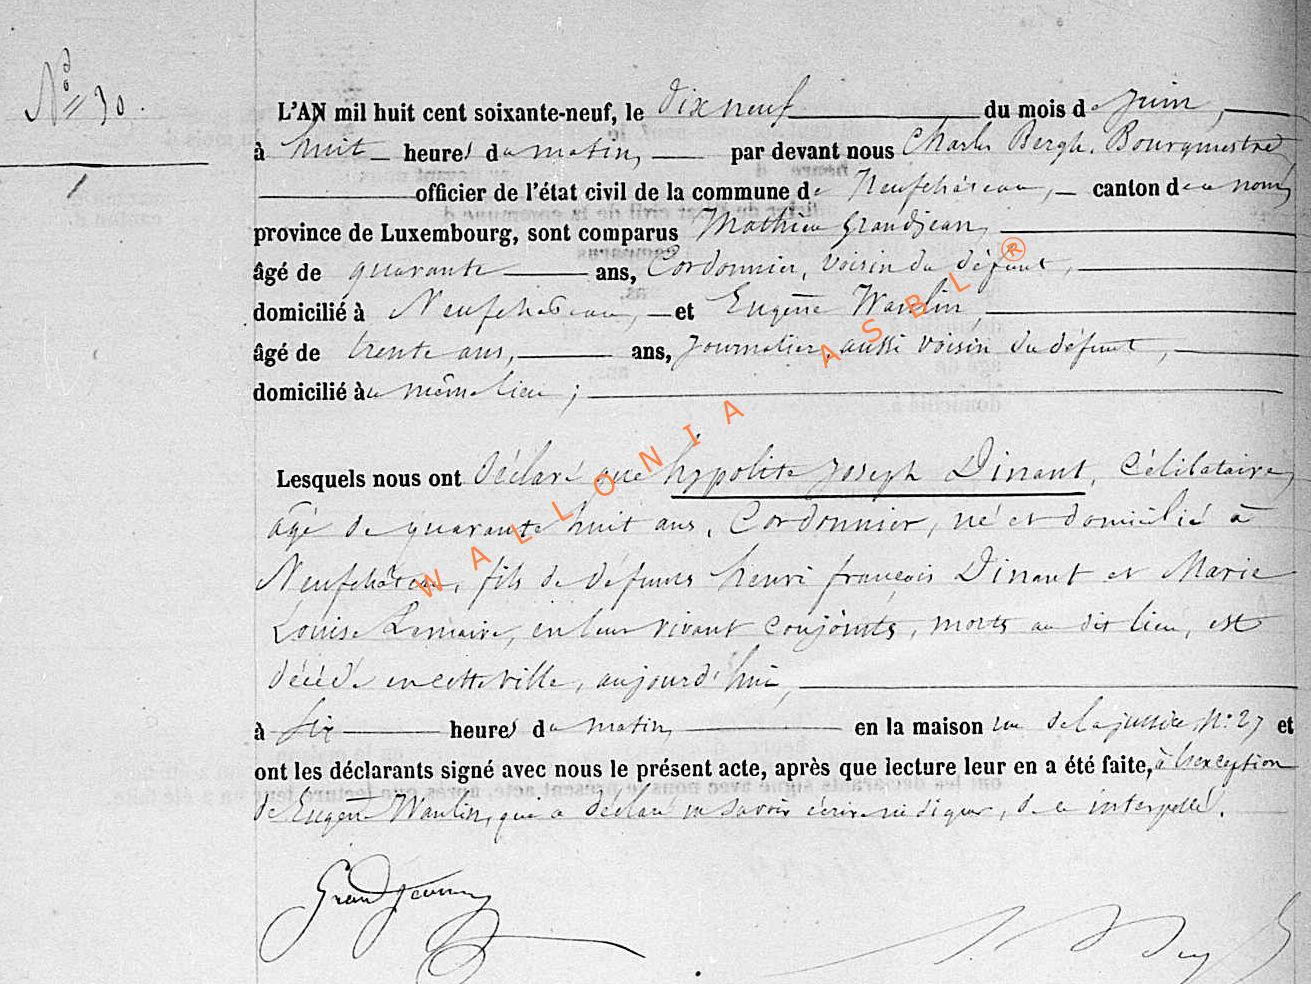 N° 30.
L'AN mil huit cent soixante-neuf, le dix neuf du mois de juin,
à huit heures du matin, par devant nous Charles Bergh, Bourgmestre
officier de l'état civil de la commune de Neufchâteau, canton de ce nom,
province de Luxembourg, sont comparus Mathieu Grandjean,
âgé de quarante ans, Cordonnier, voisin du défunt,
domicilié à Neufchateau, et Eugène Wanlin,
âgé de trente ans, ans, journalier, aussi voisin du défunt,
domicilié au même lieu ;
Lesquels nous ont déclaré que hypolite Joseph Dinant, Célibataire,
âgé de quarante huit ans, Cordonnier, né et domicilié à
Neufchâteau, fils de défunts henri françois Dinant et Marie
Louise Lemaire, en leur vivant conjoints, morts au dit lieu, est
décédé en cette ville, aujourd'hui,
à six heures du matin, en la maison rue de la justice N° 27 et
ont les déclarants signé avec nous le présent acte, après que lecture leur en a été faite, à l'exception
de Eugène Wanlin, qui a déclaré ne savoir écrire ni signer, de ce interpellé.
Grandjean
WALLONIA ASBL ®